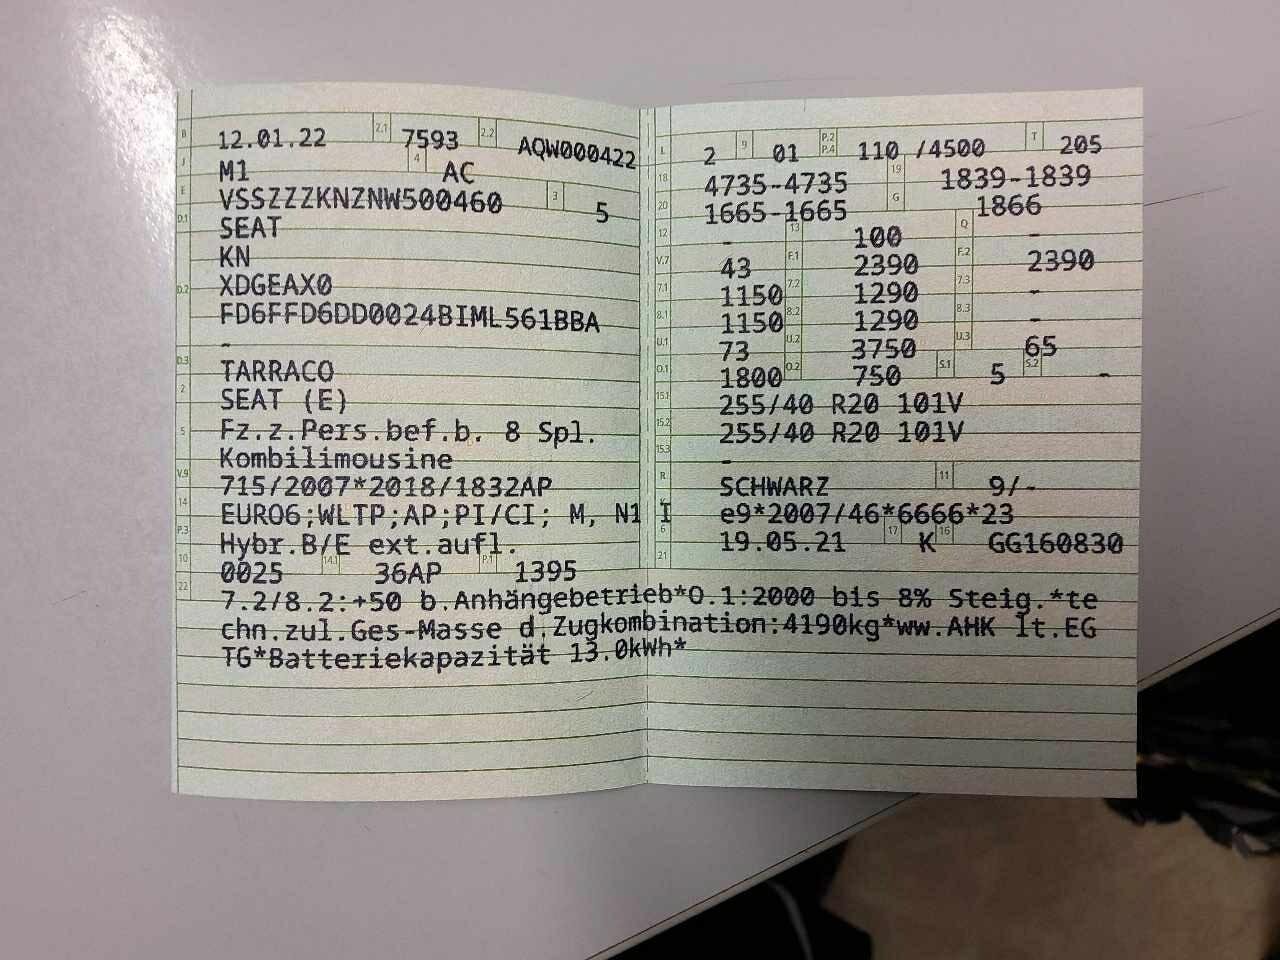 B 12.01.22 2.1 7593 2.2 AQW000422
J M1 4 AC
E VSSZZZKNZNW500460 3 5
D.1 SEAT
KN
D.2 XDGEAX0
FD6FFD6DD0024BIML561BBA
-
D.3 TARRACO
2 SEAT (E)
5 Fz.z.Pers.bef.b. 8 Spl.
Kombilimousine
V.9 715/2007*2018/1832AP
14 EURO6;WLTP;AP;PI/CI; M, N1 I
P.3 Hybr.B/E ext.aufl.
10 0025 14.1 36AP P.1 1395
L 2 9 01 P.2 P.4 110 /4500 T 205
18 4735-4735 19 1839-1839
20 1665-1665 G 1866
12 - 13 100 Q -
V.7 43 F.1 2390 F.2 2390
7.1 1150 7.2 1290 7.3 -
8.1 1150 8.2 1290 8.3 -
U.1 73 U.2 3750 U.3 65
O.1 1800 O.2 750 S.1 5 S.2 -
15.1 255/40 R20 101V
15.2 255/40 R20 101V
15.3 -
R SCHWARZ 11 9/-
K e9*2007/46*6666*23
6 19.05.21 17 K 16 GG160830
21
22 7.2/8.2:+50 b.Anhängebetrieb*O.1:2000 bis 8% Steig.*te
chn.zul.Ges-Masse d.Zugkombination:4190kg*ww.AHK lt.EG
TG*Batteriekapazität 13.0kWh*